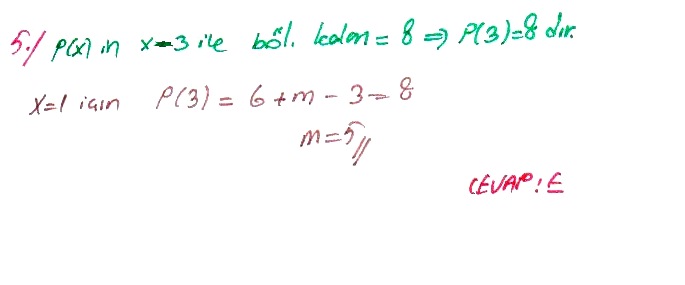 5./ P(x) in x-3 ile böl. kalan = 8 ⇒ P(3)=8 dir.
x=1 için P(3) = 6+m-3=8
m=5//
CEVAP: E